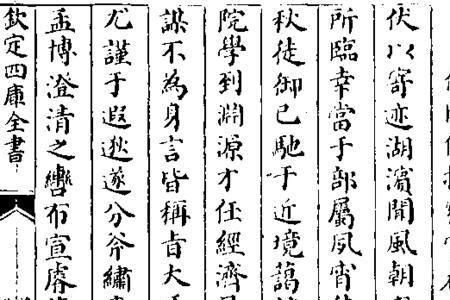 伏以寄迹湖濱聞風朝
所臨幸當于部屬夙宵
秋徒御已馳于近境藹
院學到淵源才任經濟
謀不為身言皆稱旨大
尤謹于遐逖遂分斧繡
孟博澄清之轡布宣睿
欽定四庫全書